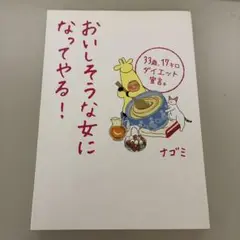 おいしそうな女に
なってやる!
33歳、17キロ
ダイエット
宣言。
ナゴミ